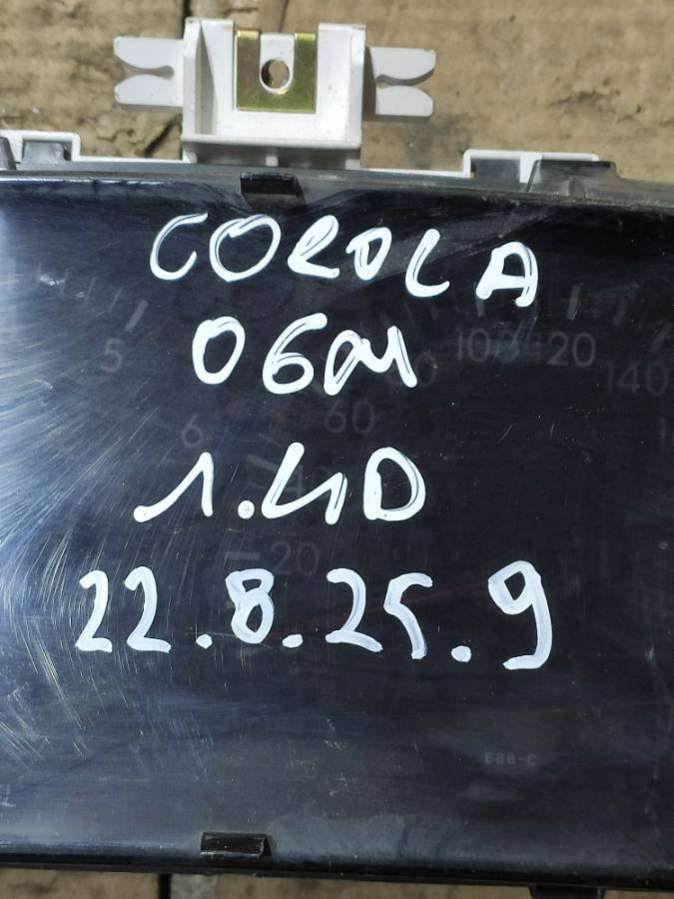 COROLA
06M
5
100
120
80
140
60
6
1.4D
20
22.8.25.9
E8B-C